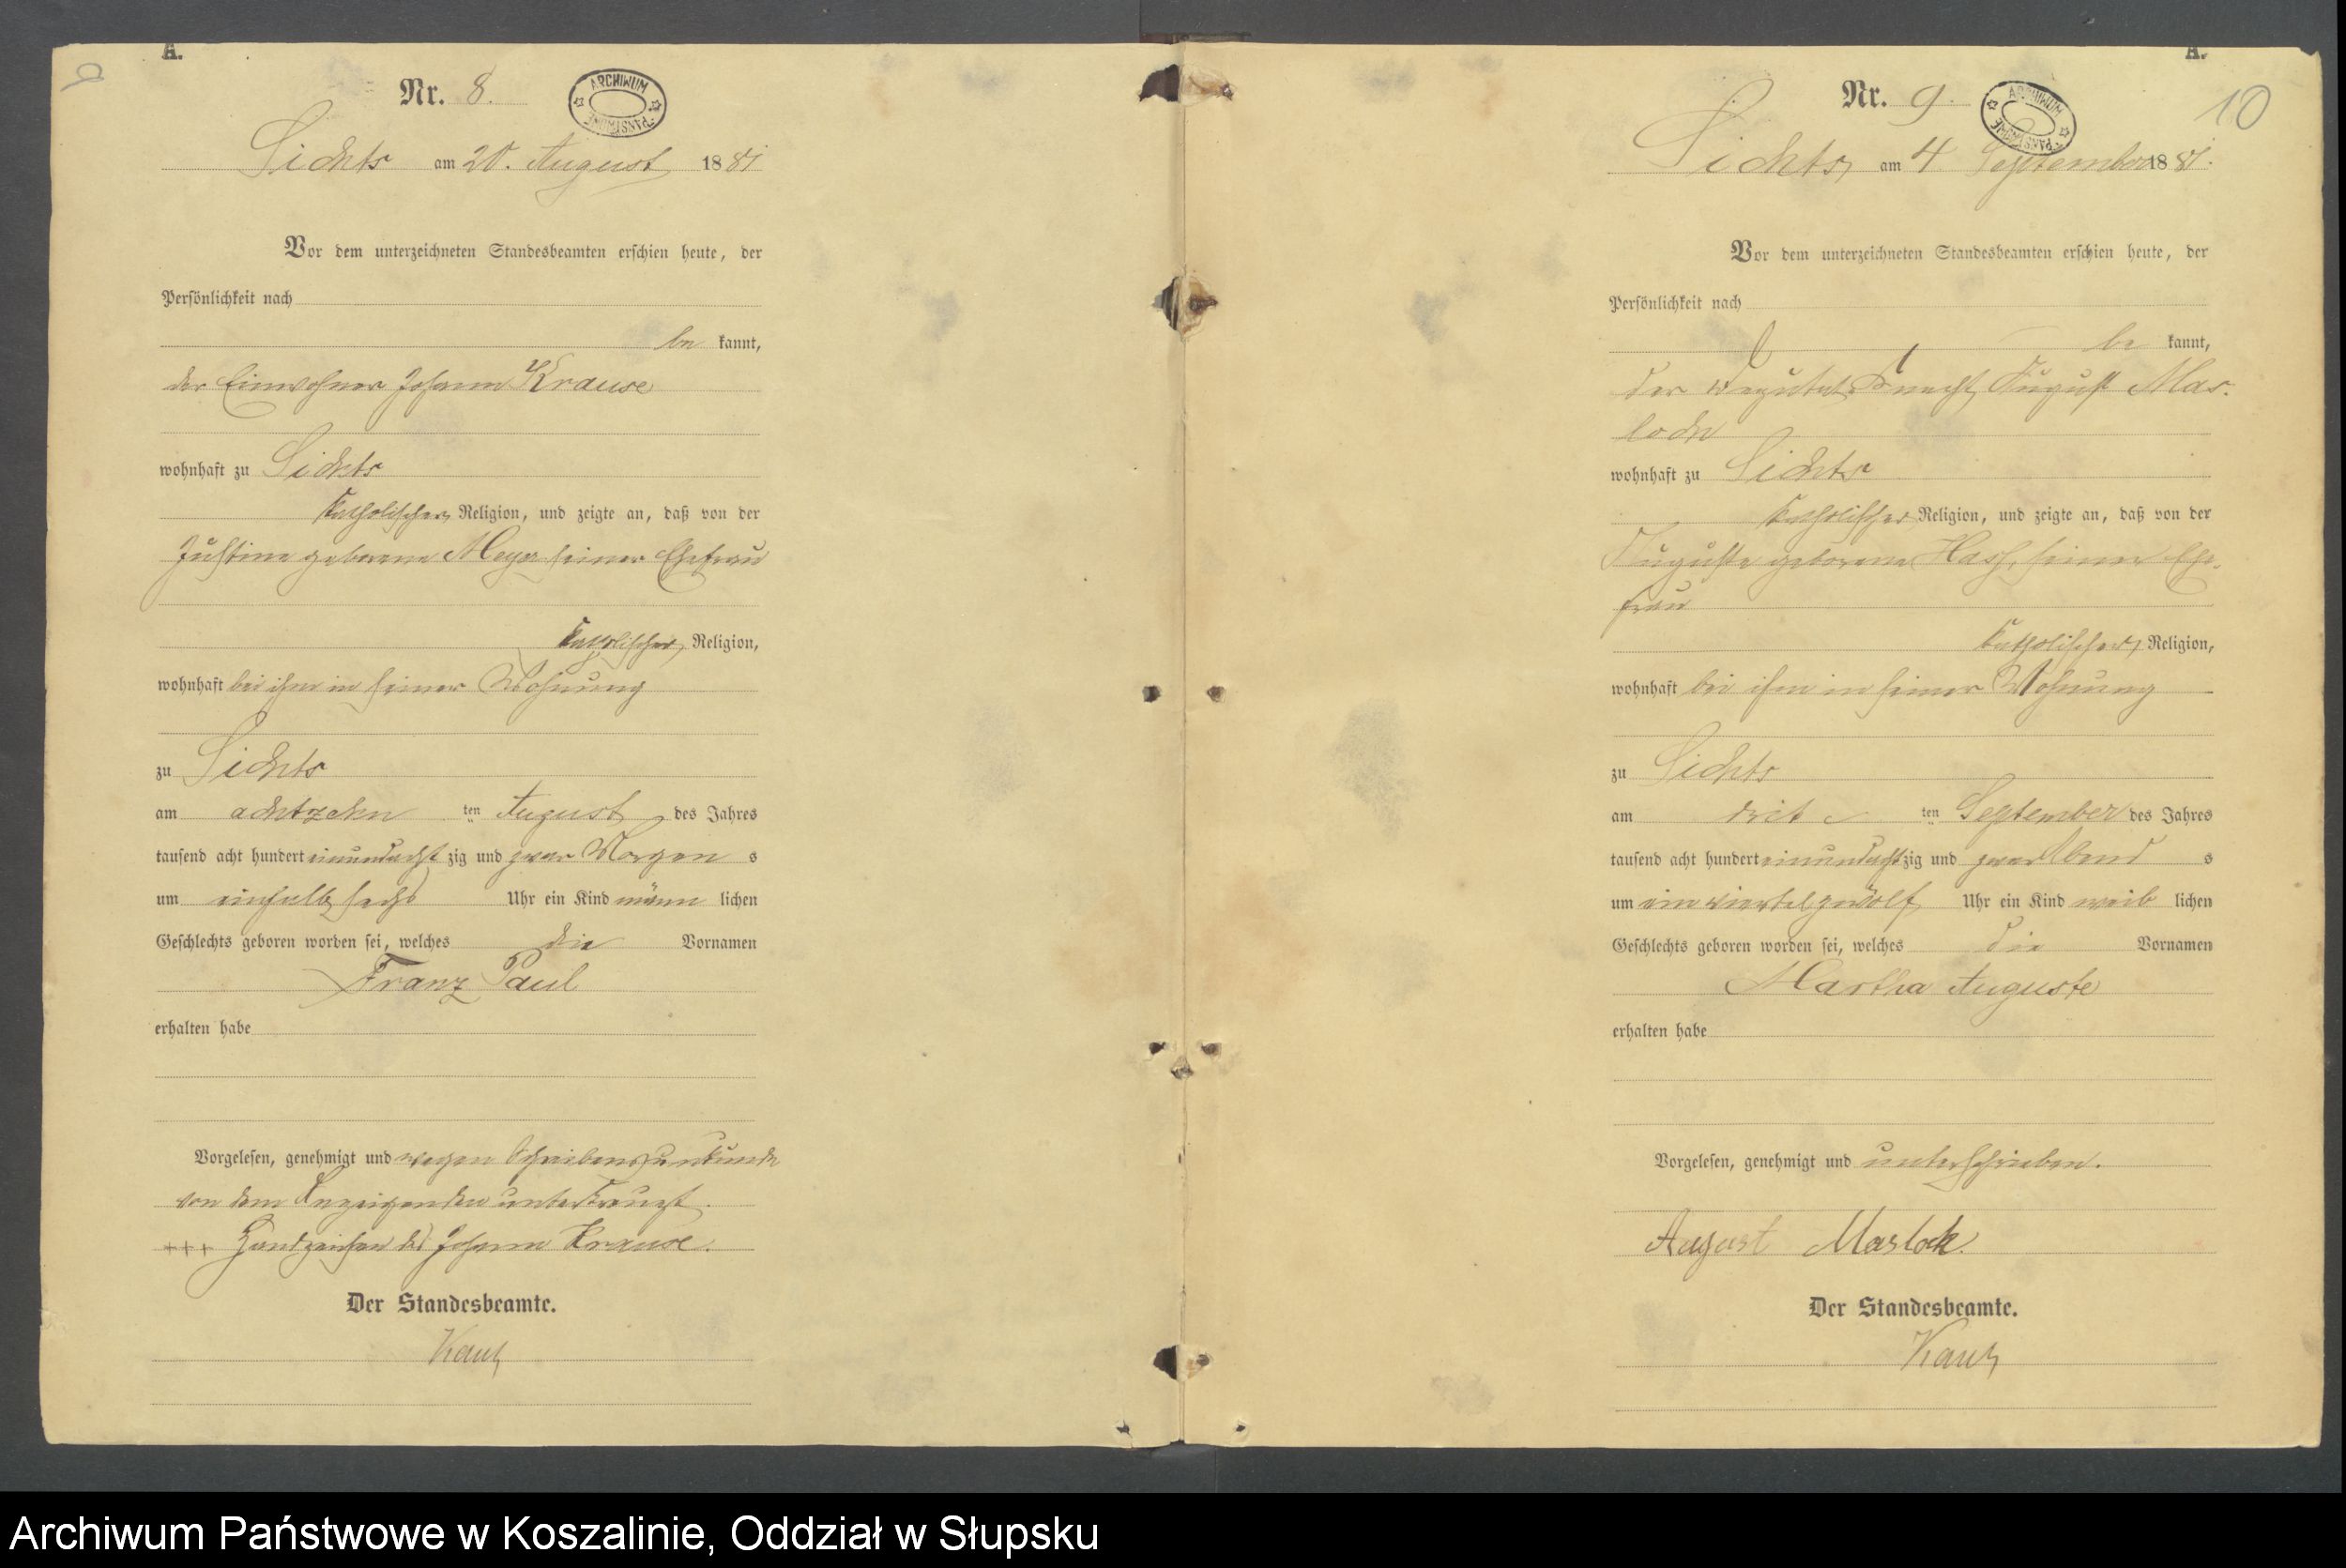 A.
Nr. 8.
ARCHIWUM PAŃSTWOWE
Sichts am 20. August 1881
Vor dem unterzeichneten Standesbeamten erschien heute, der
Persönlichkeit nach
be kannt,
der Einwohner Johann Krause
wohnhaft zu Sichts
katholischer Religion, und zeigte an, daß von der
Justine geborene Meyer seiner Ehefrau
katholischer Religion,
wohnhaft bei ihm in seiner Wohnung
zu Sichts
am achtzehn ten August des Jahres
tausend acht hundert einundacht zig und zwar Morgen s
um einhalb sechs Uhr ein Kind männ lichen
Geschlechts geboren worden sei, welches die Vornamen
Franz Paul
erhalten habe
Vorgelesen, genehmigt und wegen Schreibensunkunde
von dem Anzeigenden unterkreuzt.
+++ Handzeichen des Johann Krause.
Der Standesbeamte.
A.
Nr. 9.
10
ARCHIWUM PAŃSTWOWE
Sichts, am 4 September 1881.
Vor dem unterzeichneten Standesbeamten erschien heute, der
Persönlichkeit nach
be kannt,
der Deputat Knecht August Mas-
lock
wohnhaft zu Sichts
katholischer Religion, und zeigte an, daß von der
Auguste geborene Hass, seiner Ehe-
frau
katholischer Religion,
wohnhaft bei ihm in seiner Wohnung
zu Sichts
am drit ten September des Jahres
tausend acht hundert einundacht zig und zwar Abend s
um ein viertel zwölf Uhr ein Kind weib lichen
Geschlechts geboren worden sei, welches die Vornamen
Martha Auguste
erhalten habe
Vorgelesen, genehmigt und unterschrieben.
August Maslock.
Der Standesbeamte.
Archiwum Państwowe w Koszalinie, Oddział w Słupsku